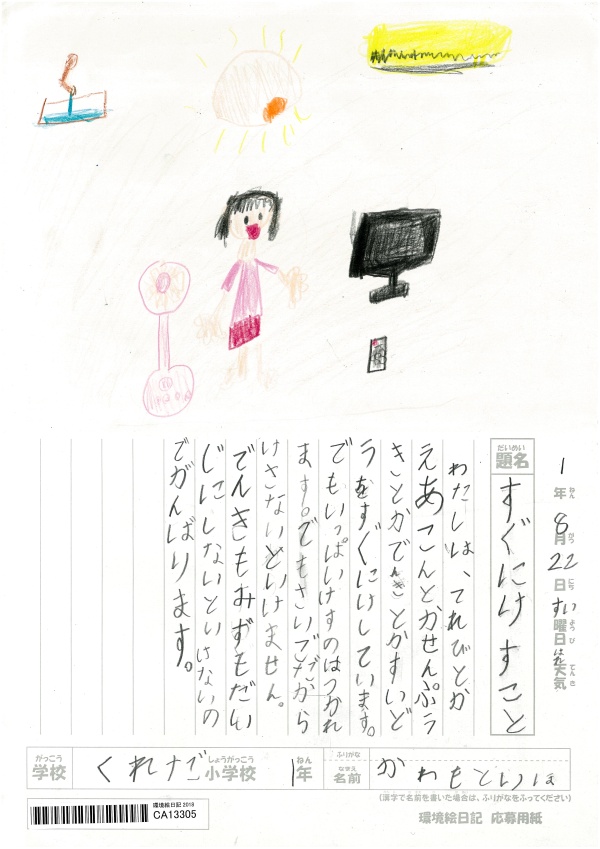 1年ねん8月がつ22日にちすい曜日ようびはれ天気てんき
題名だいめい
すぐにけすこと
わたしは、てれびとか
えあこんとかせんぷう
きとかでんきとかすいど
うをすぐにけしています。
でもいっぱいけすのはつかれ
ます。でもさいごだから
けさないといけません。
でんきもみずもだい
じにしないといけないの
でがんばります。
学校がっこう
小学校しょうがっこう 1年ねん
ふりがな
名前なまえ かわもと
(漢字で名前を書いた場合は、ふりがなをふってください)
環境絵日記 2018
CA13305
環境絵日記 応募用紙